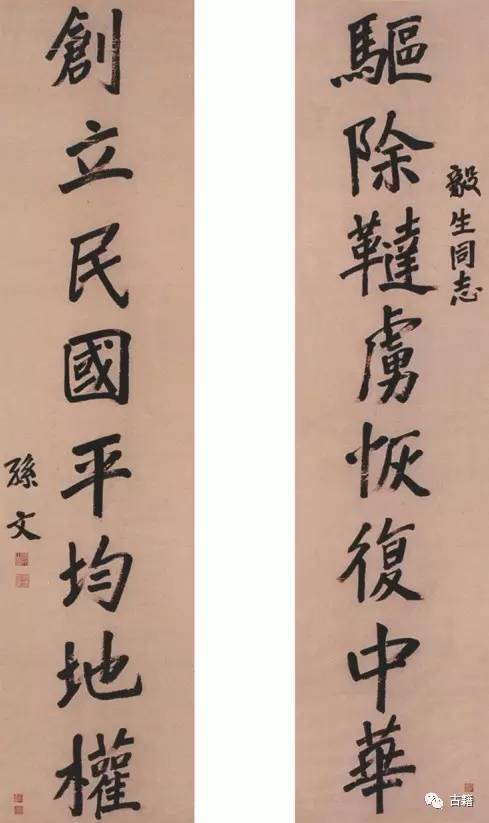 毅生同志
驅除韃虜恢復中華
創立民國平均地權
孫文
古籍